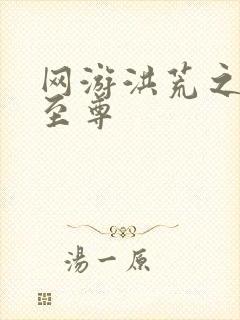 网游洪荒之
至尊
湯一原